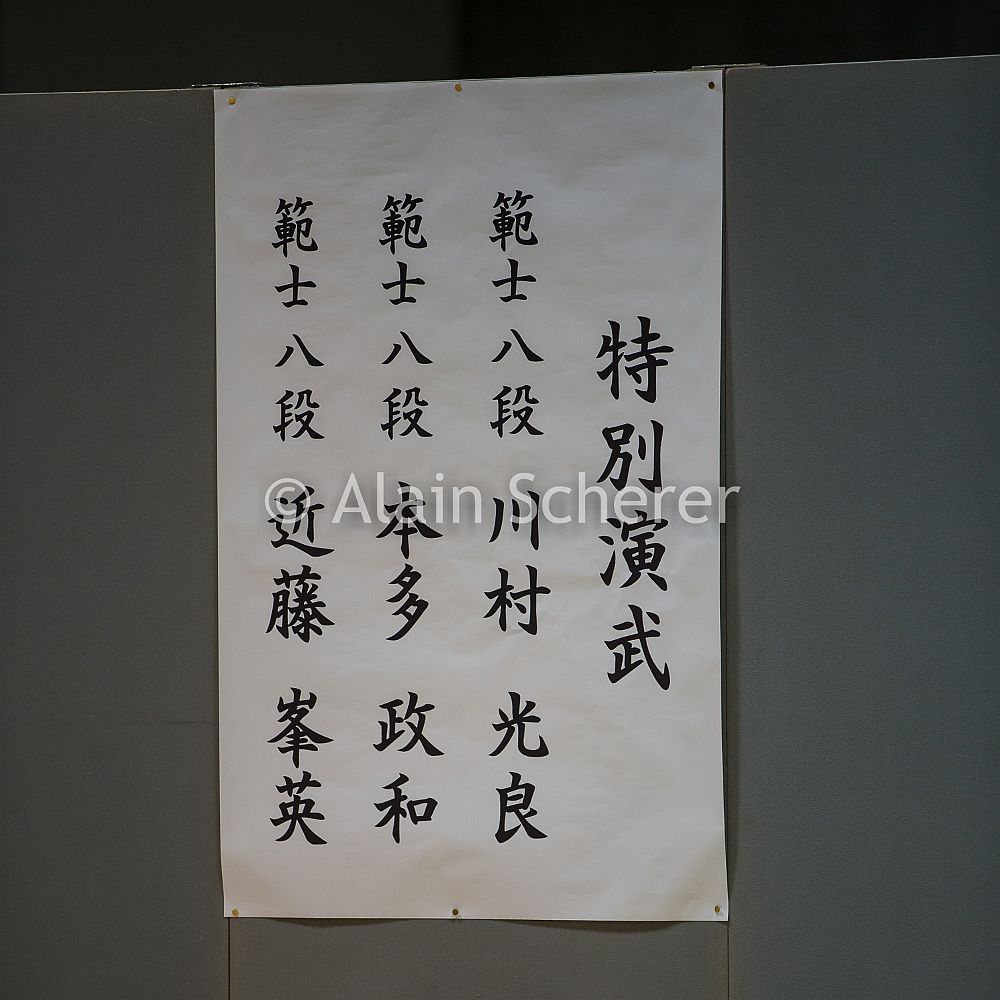 特別演武
範士八段 川村 光良
範士八段 本多 政和
範士八段 近藤 峯英
© Alain Scherer